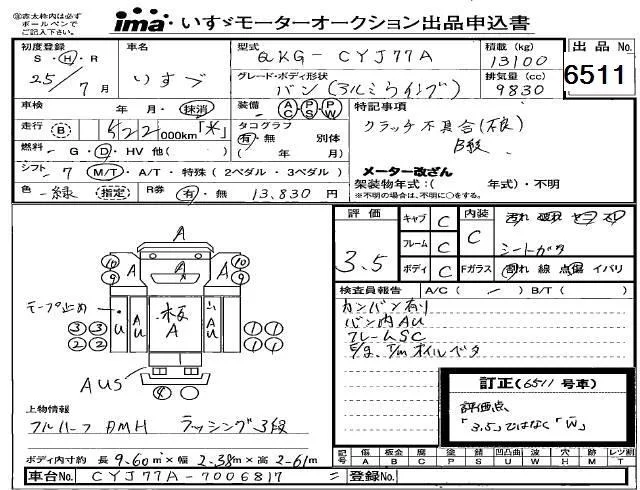 ※赤太枠内は必ず
ボールペンで
ご記入下さい。
ima いすゞモーターオークション出品申込書
初度登録 車名 型式 積載 (kg) 出品 No.
S・H・R いすゞ QKG-CYJ77A 13100
25/7月 グレード・ボディ形状 排気量 (cc) 6511
バン(アルミウイング) 9830
車検 年 月・抹消 装備 AC・PS・PW 特記事項
走行 B 522,000km「*」 タコグラフ クラッチ不具合(不良)
有・無 別体 B級
燃料 - G・D・HV 他( ) ( 年 月) メーター改ざん
シフト - 7 M/T・A/T・特殊(2ペダル・3ペダル) 架装物年式:( 年式)・不明
※不明の場合は、不明に○をする。
色 - 緑 (指定) R券 有・無 13,830 円
評価 キャブ C 内装 汚れ 破れ
3.5 フレーム C C シートガタ
ボディ C Fガラス 割れ 線 点傷 イバリ
検査員報告 A/C( - ) B/T( )
カンバン有り
バン内AU
フレームSC
E/g, T/m オイルベタ
A
10 A A 10
9 9
モープ止め
U A 板 A A U
U U
3 3 1 1
2 2 1 1
AUS
4
訂正(6511号車)
評価点、
「3.5」ではなく「W」
上物情報
フルハーフ DMH ラッシング3段
ボディ内寸約 長 9.60m×幅 2.38m×高 2.61m
記号 傷 板金 腐 塗 錆 凹凸曲 波 穴 跡 レンズ割
A B C P S U W H M T
車台No. CYJ77A-7006817 = 登録No.